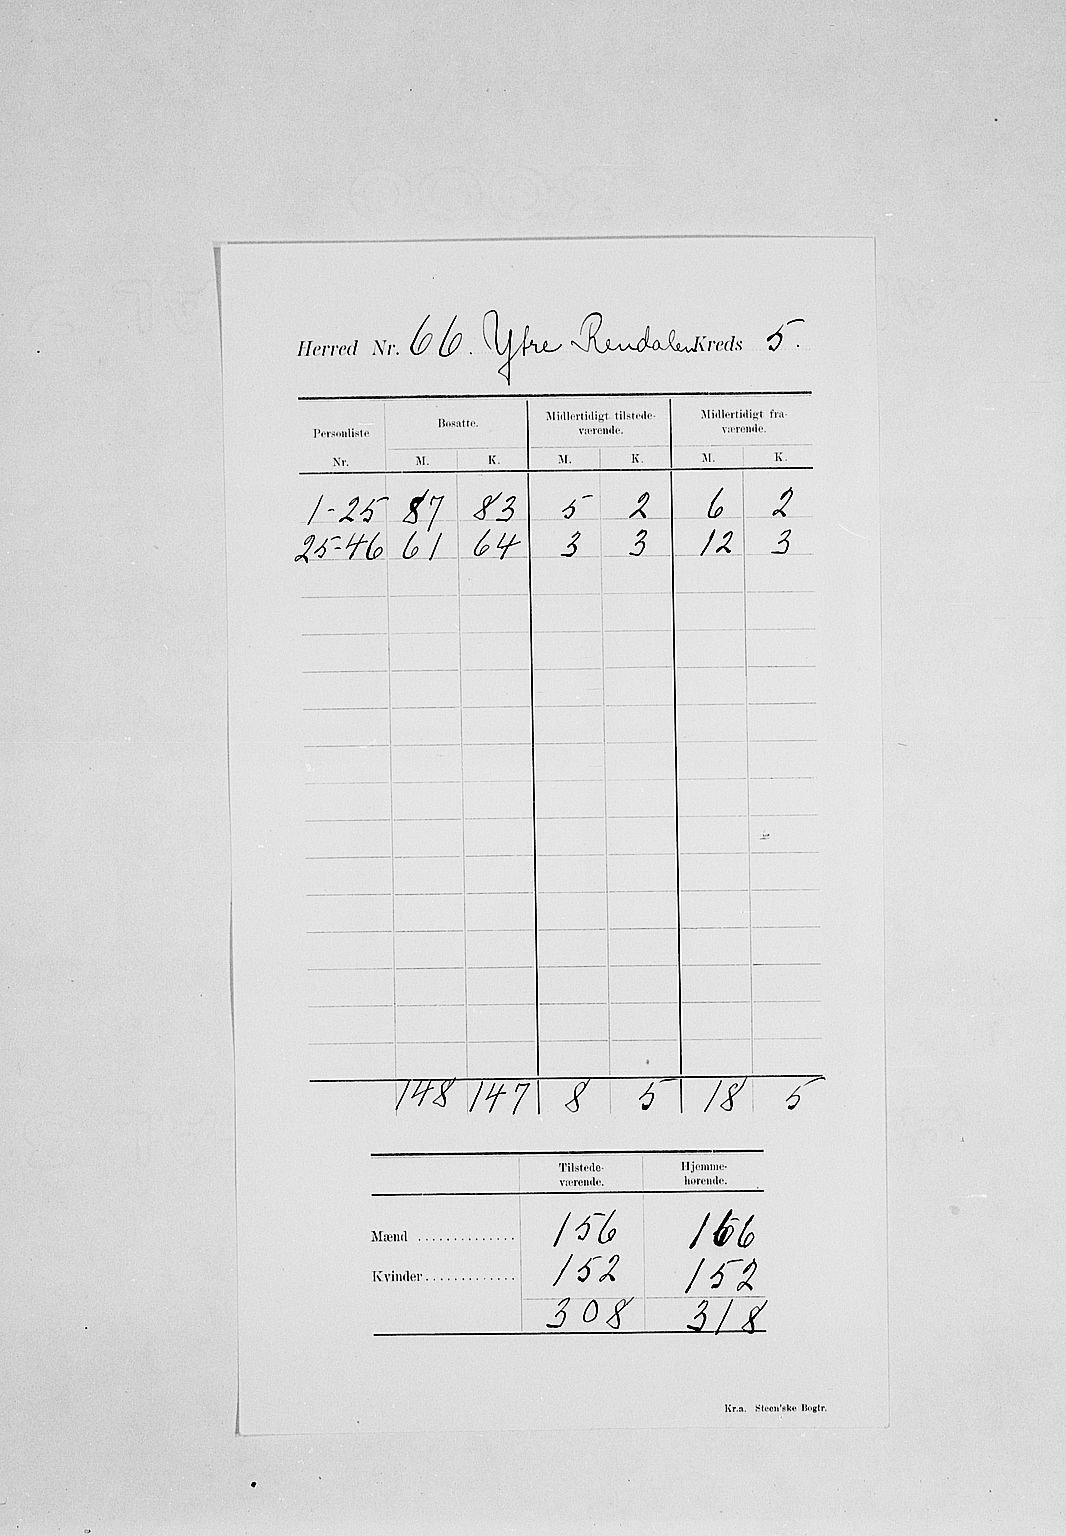 Herred Nr. 66. Ytre Rendalen Kreds 5.
Personliste Nr. Bosatte. Midlertidigt tilstede-værende. Midlertidigt fra-værende.
M. K. M. K. M. K.
1-25 87 83 5 2 6 2
25-46 61 64 3 3 12 3
148 147 8 5 18 5
Tilstede-værende. Hjemme-hørende.
Mænd .............. 156 166
Kvinder ............. 152 152
308 318
Kr.a. Steen'ske Bogtr.